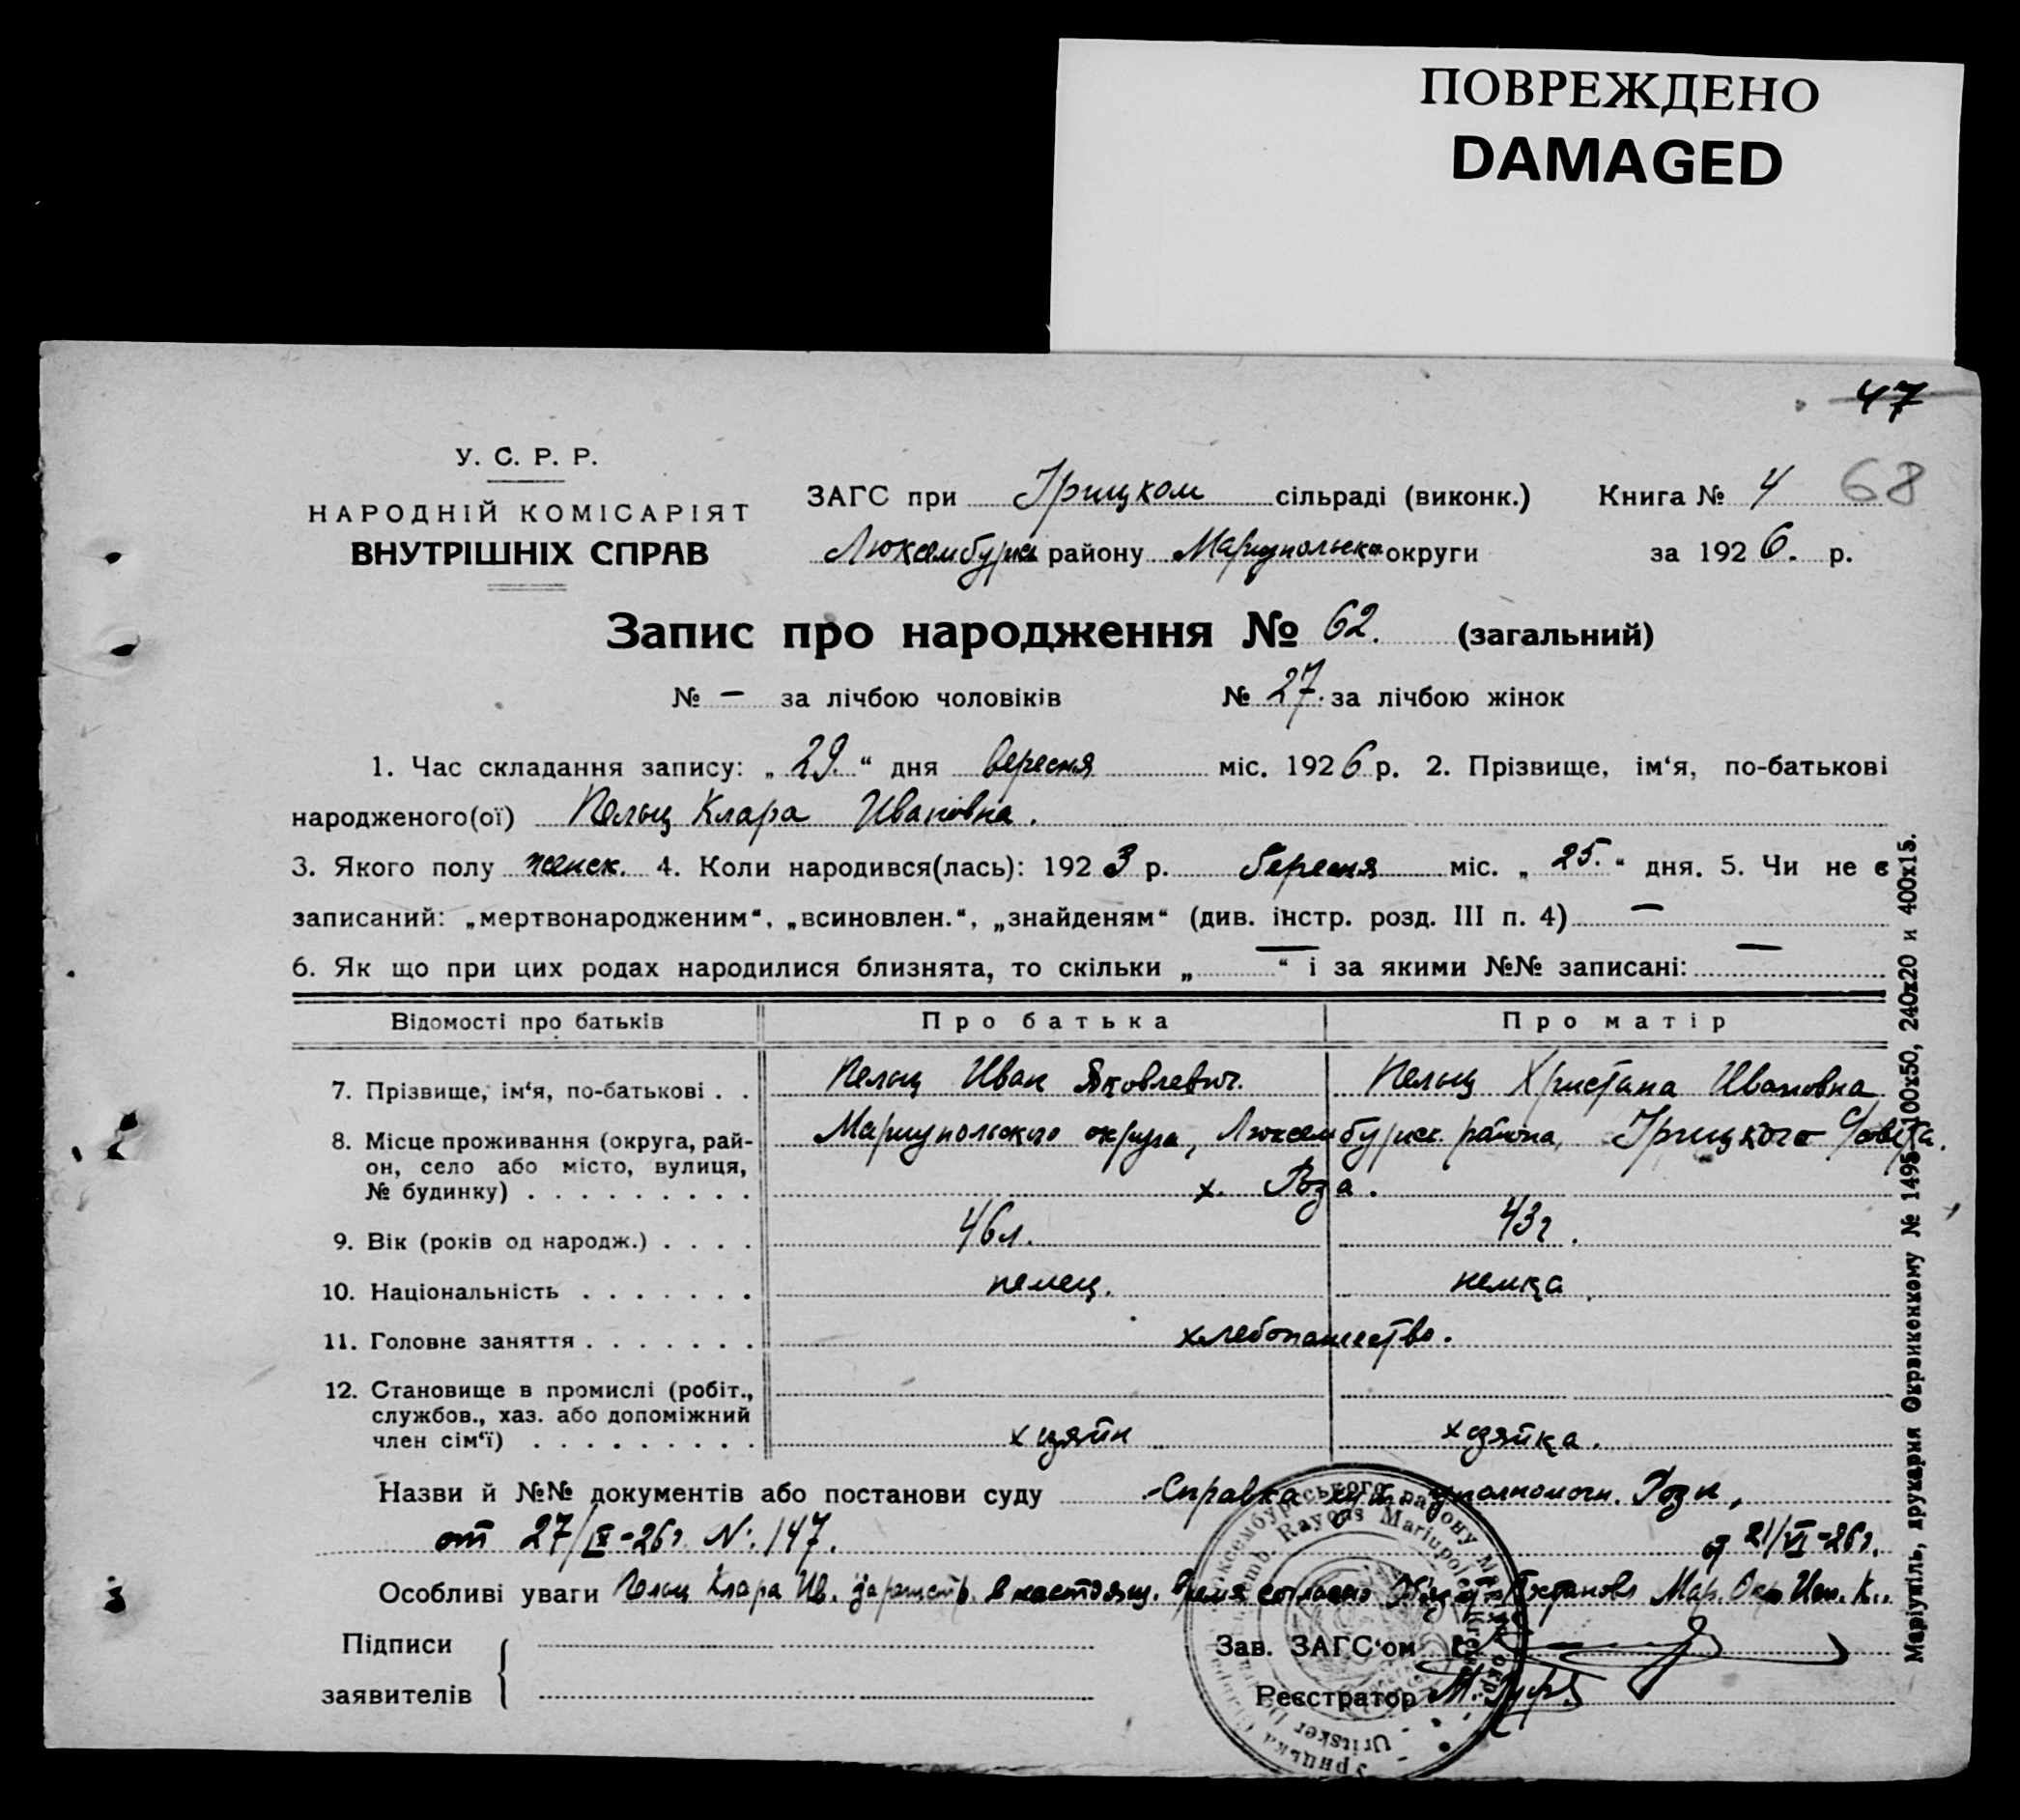 ПОВРЕЖДЕНО
DAMAGED
47
У. С. Р. Р.
НАРОДНІЙ КОМІСАРІЯТ
ВНУТРІШНІХ СПРАВ
ЗАГС при Урицком сільраді (виконк.) Книга № 4 68
Люксембургск району Мариупольск округи за 1926. р.
Запис про народження № 62. (загальний)
№ — за лічбою чоловіків № 27. за лічбою жінок
1. Час складання запису: „29.“ дня вересня міс. 1926 р. 2. Прізвище, ім‘я, по-батькові
народженого(ої) Пельц Клара Ивановна.
3. Якого полу женск. 4. Коли народився(лась): 1923 р. березня міс. „25.“ дня. 5. Чи не є
записаний: „мертвонародженим“, „всиновлен.“, „знайденям“ (див. інстр. розд. III п. 4) —
6. Як що при цих родах народилися близнята, то скільки „—“ і за якими №№ записані: —
Відомості про батьків Про батька Про матір
7. Прізвище, ім‘я, по-батькові . . Пельц Иван Яковлевич. Пельц Христана Ивановна
8. Місце проживання (округа, рай-он, село або місто, вулиця, № будинку) . . . . . . . . . Мариупольского округа, Люксембургск. района, Урицкого Совета.
х. Роза.
9. Вік (років од народж.) . . . . 46 л. 43 г.
10. Національність . . . . . . . немец. немка.
11. Головне заняття . . . . . . . хлебопашество.
12. Становище в промислі (робіт., службов., хаз. або допоміжний член сім‘ї) . . . . . . . . . хозяйн хозяйка.
Назви й №№ документів або постанови суду Справка уполномоч. Розы,
от 27/IX-26 г. N: 147. от 21/VI-26 г.
Особливі уваги Пельц Клара Ив. в настоящ. время согласно Постановл Мар. Окр. Исп. К..
Підписи
заявителів
Зав. ЗАГС‘ом
Реєстратор
Люксембурзького району
Rayons Mariupoler
Uritsker
Маріупіль, друкарня Окрвиконкому № 1495-100x50, 240x20 и 400x15.